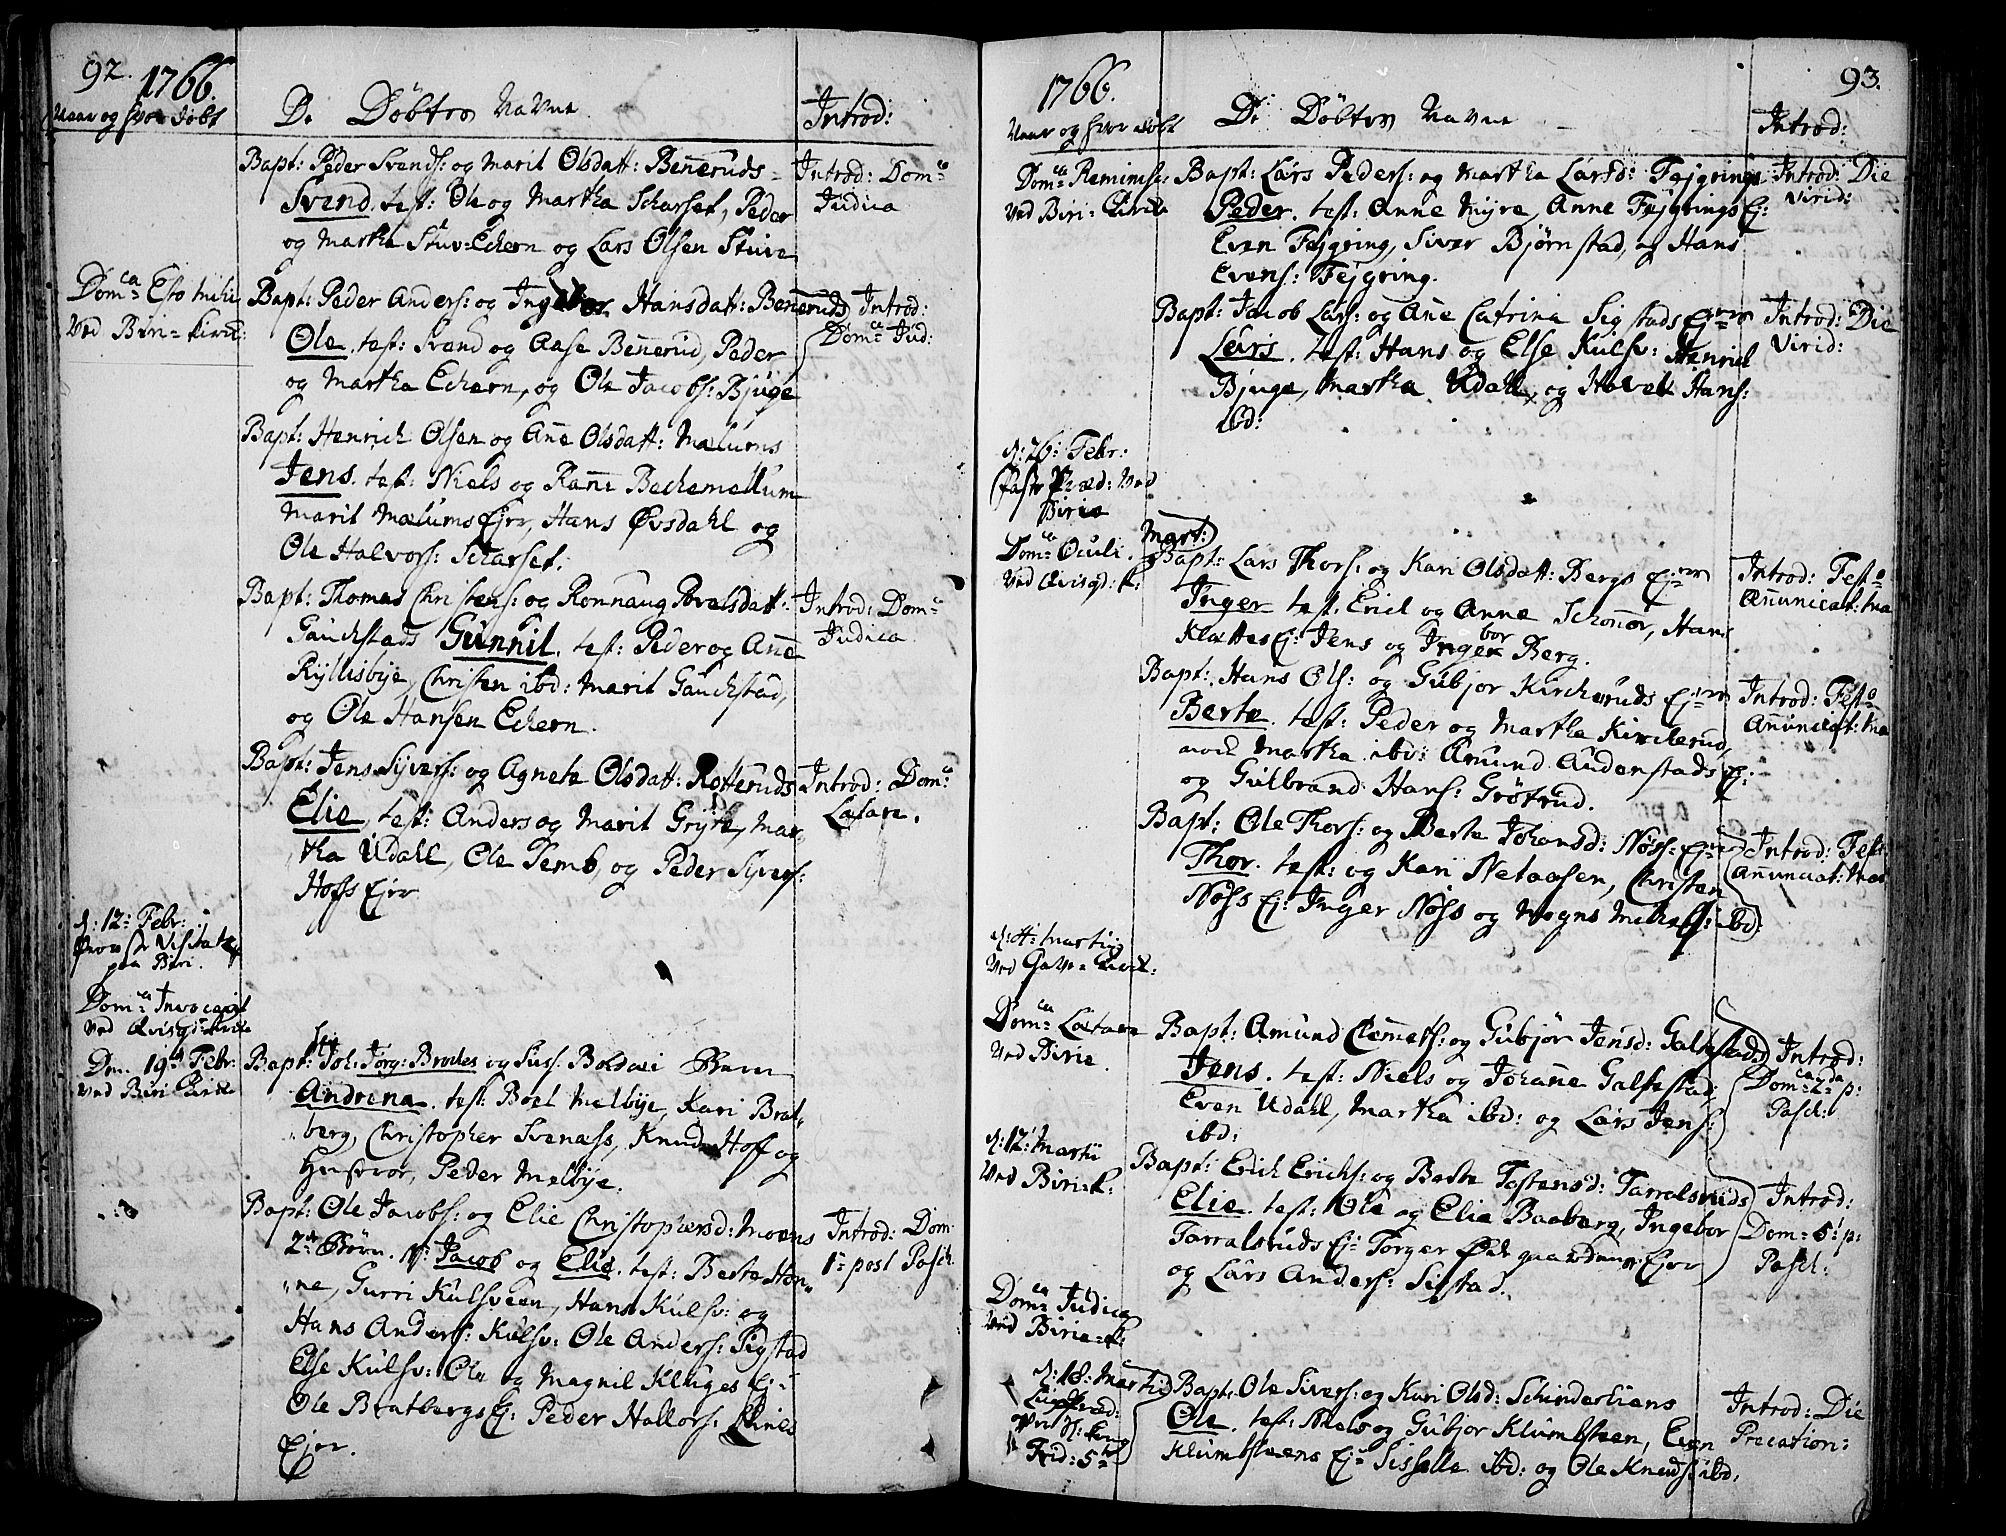 92.
1766.
Naar og hvor døbt
De Döbtes Navne
Introd:
Bapt: Peder Svends: og Marit Olsdatt: Benneruds
Svend. test: Ole og Martha Scharset, Peder
og Martha Stuv-Echern og Lars Olsen Stuve
Introd: Dom:
Judica
Dom:ca Esto mihi
Ved Biri-Kirke:
Bapt: Peder Anders: og Ingebor Hansdatt: Benneruds
Ole. test: Svend og Aase Bennerud, Peder
og Martha Echern, og Ole Jacobs: Bjuge
Introd:
Dom:ca Jud:
Bapt: Henrich Olsen og Ane Olsdatt: Mælums
Jens. test: Niels og Rañi Bechemellum
Marit Mælums Ejer, Hans Øvsdahl og
Ole Halvors: Scharset.
Bapt: Thomas Christens: og Ronnaug Povelsdatt:
Gauchstads Gunnil. test: Peder og Añe
Ryllisbye, Christen ibd: Marit Gauchstad,
og Ole Hansen Echern.
Introd: Dom:
Judica
Bapt: Jens Syvers: og Agnete Olsdatt: Rotteruds
Elie, test: Anders og Marit Gryte, Mar-
tha Udall, Ole Demb, og Peder Syvers:
Hoffs Ejer
Introd: Dom:
Lætare.
d: 12: Febr:
Visitatz
paa Biri.
Dom:ca Invocavit
Ved Kirke
Den 19: Febr:
Ved Biri Kirke
Bapt: Joh: Jorg: Brodes og Suss: Barn
Andrena. test: Boel Melbye, Kari Brat-
berg, Christopher Svenæss, Knud Hoff og
Hustroe, Peder Melbye.
Bapt: Ole Jacobs: og Elie Christophersd: Moens
2de Börn. N: Jacob og Elie. test: Berte Hon-
ne, Gurri Kulsveen, Hans Kulsv: og
Hans Anders: Kulsv: Ole Anders: Sigstad
Else Kulsv: Ole og Magnil Kluges Ej:
Ole Bratbergs Ej: Peder Hallors:
Ejer.
Introd: Dom:
1: post Pasch
1766.
93.
Naar og hvor døbt
De Döbtes Navne
Introd:
Dom:ca Reminisc:
Ved Biri-Kirke
Bapt: Lars Peders: og Martha Larsd: Fejgrings
Peder. test: Anne Myre, Anne Fejgrings Ej:
Even Fejgring, Siver Bjørnstad, og Hans
Evens: Fejgring.
Introd: Die
Virid:
Bapt: Jacob Lars: og Ane Catrina Sigstads Ejer
Lars. test: Hans og Else Kulsv: Henrich
Bjuge, Martha Udall, og Havel Hans:
ibd:
Introd: Die
Virid:
d: 26: Febr:
Faste Præd: Ved
Birie
Mart:
Dom:ca Oculi.
Ved Qvisgd: K:
Bapt: Lars Thors: og Kari Olsdatt: Bergs Ejer
Inger test: Erich og Anne Schonør, Hans
Klattes Ej: Jens og Ingebor Berg.
Introd: Fest:
Anunciat: Ma
Bapt: Hans Ols: og Gubjør Kircheruds Ejer
Berte. test: Peder og Martha Kircherud,
noch Martha ibd: Amund Audenstads Ej:
og Gulbrand Hans: Grötrud.
Introd: Fest:
Anunciat: Ma
Bapt: Ole Thors: og Berte Johansd: Nöss-Ejer
Thor. test: og Kari Netaasen, Christen
Nöss Ej: Inger Nöss og Mogns Mikels: ibd:
Introd: Fest:
Anunciat: Mar
d: 4: Martii
Ved Kirk:
Dom:ca Lætare
Ved Birie
Bapt: Amund Clemets: og Gubjør Jensd: Galtestads
Jens. test: Niels og Johañe Galtestad,
Even Udahl, Martha ibd: og Lars Jens:
ibd:
Introd:
Dom:ca 2da p:
Pasch:
d: 12: Martii
Ved Birie K:
Bapt: Erich Erichs: og Berte Tostensd: Tarralsruds
Elie. test: Ole og Elie Baaberg, Ingebor
Tarralsruds Ej: Torger Ødegaardens Ejer
og Lars Anders: Sigstad.
Introd:
Dom: 5: p:
Pasch:
Dom:ca Judica
Ved Birie-K:
d: 18: Martii
Bapt: Ole Sivers: og Kari Olsd: Schinderliens
Ole. test: Niels og Gubjør Klumbsteen, Even
Klumbsteens Ej: Sisselle ibd: og Ole Knuds: ibd:
Introd: Die
Precation: